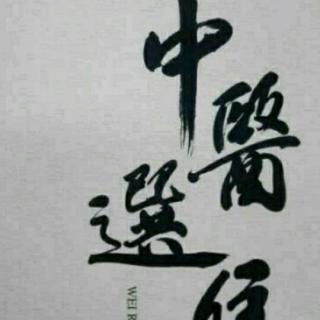 中醫選
WEI